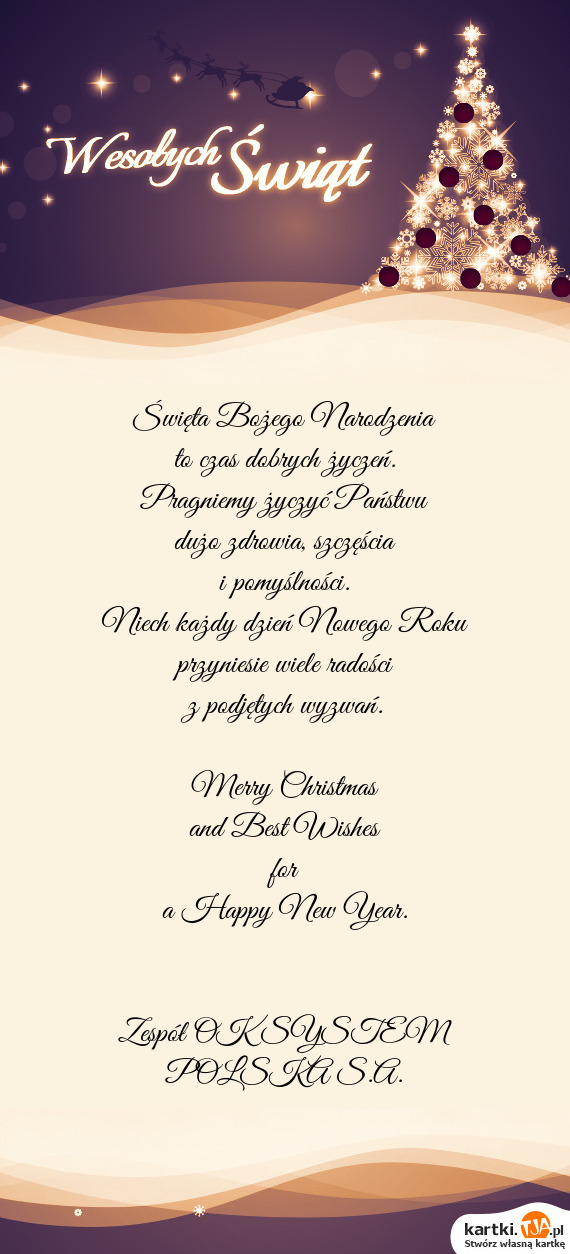 Wesołych Świąt
Święta Bożego Narodzenia
to czas dobrych życzeń.
Pragniemy życzyć Państwu
dużo zdrowia, szczęścia
i pomyślności.
Niech każdy dzień Nowego Roku
przyniesie wiele radości
z podjętych wyzwań.
Merry Christmas
and Best Wishes
for
a Happy New Year.
Zespół OKSYSTEM
POLSKA S.A.
kartki.TJA.pl
Stwórz własną kartkę